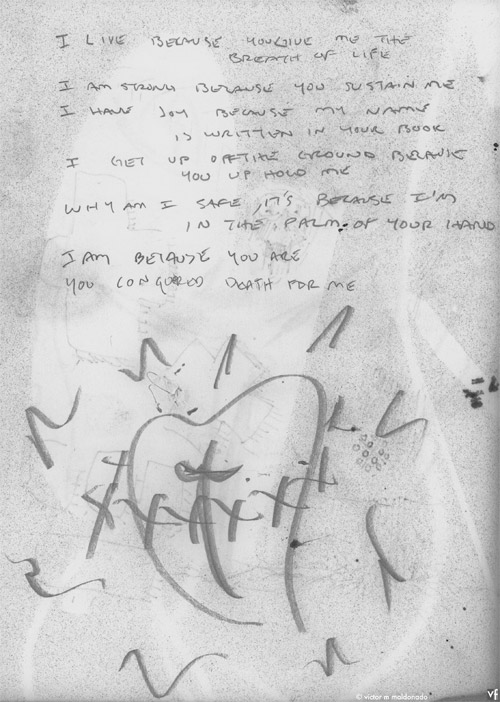 I LIVE BECAUSE YOU GIVE ME THE
BREATH OF LIFE
I AM STRONG BECAUSE YOU SUSTAIN ME
I HAVE JOY BECAUSE MY NAME
IS WRITTEN IN YOUR BOOK
I GET UP OFF THE GROUND BECAUSE
YOU UP HOLD ME
WHY AM I SAFE, IT'S BECAUSE I'M
IN THE PALM OF YOUR HAND
I AM BECAUSE YOU ARE
YOU CONQUERED DEATH FOR ME
© victor m maldonado
VF